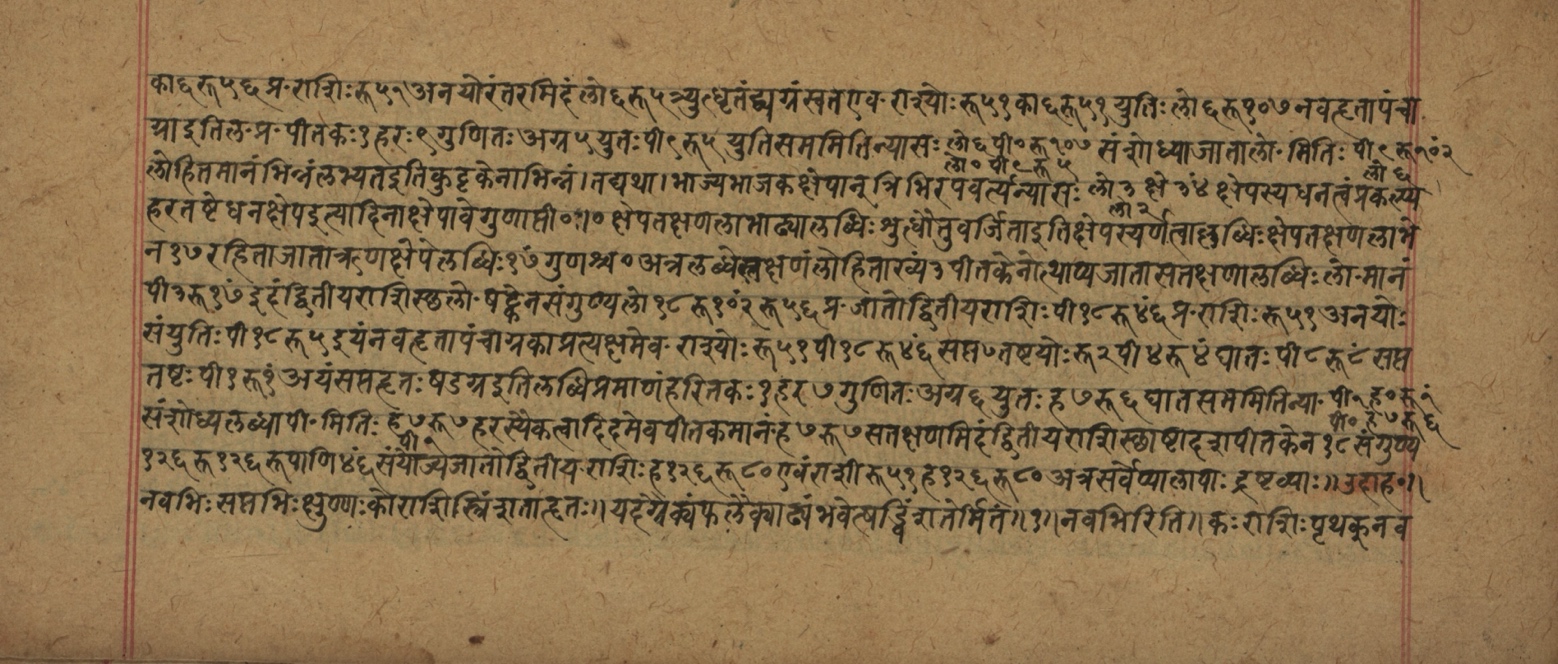 का६रू५६प्र॰राशिः रू५१अनयोरंतरमिदं लो६रू५त्र्युत्धृतं द्व्यग्रं स्वत एव॰ राश्योः रू५१का६रू५१युतिः लो६रू१०७नवत्दृतापंचा
ग्राइतिल॰प्र॰पीतकः१हरः९गुणितः अग्र५युतः पी९रू५युतिसममितिन्यासः लो६पी०रू१०७ संशोध्याजातालो॰मितिः पी९रू१०ं२
लो०पी९रू५ लो६
लोहितमानंभिन्नंलभ्यतइतिकुट्टकेनाभिन्नं।तद्यथा।भाज्यभाजकक्षेपान्त्रिभिरपवर्त्यन्यासः लो३क्षे३ं४ क्षेपस्यधनत्वंप्रकल्प्य
लो२
हरतष्टेधनक्षेपइत्यादिनाक्षेपावेगुणाप्ती०।०क्षेपतक्षणलाभाढ्यालब्धिः शुत्धौतुवर्जिताइतिक्षेपस्यर्णत्वाल्लब्धिः क्षेपतक्षणलाभे
न१७रहिताजाताऋणक्षेपेलब्धिः१७ंगुणश्च०अत्रलब्धेस्तक्षणंलोहिताख्यं३पीतकेनोत्थाप्यजातासतक्षणालब्धिः लो॰मानं
पी३रू१७ं इदंद्वितीयराशिस्छलो॰षट्केनसंगुण्यलो१८रू१०ं२रू५६प्र॰जातोद्वितीयराशिः पी१८रू४ं६प्र॰राशिः रू५१अनयोः
संयुतिः पी१८रू५इयंनवत्दृतापंचाग्रकाप्रत्यक्षमेव॰राश्योः रू५१पी१८रू४ं६सप्त७तष्टयोः रू२पी४रू४ंघातः पी८रू८ंसप्त
तष्टः पी१रू१ंअयंसप्तत्दृतः षडग्रइतिलब्धिप्रमाणंहरितकः१हर७गुणितः अग्र६युतः ह७रू६घातसममितिन्या॰ पी१ह०रू१ं
पी०ह७रू६
संशोध्यलब्धापी॰मितिः ह७रू७हरस्यैकत्वादिदमेवपीतकमानं॰ह७रू७सतक्षणमिदंद्वितीयराशिस्छाष्टादशपीतकेन१८संगुण्य
पी१
१२६रू१२६रूपाणि४ं६संयोज्यजातोद्वितीय॰राशिः ह१२६रू८०एवंराशीरू५१ह१२६रू८०अत्रसर्वेप्यालापाः द्रष्टव्याः॥उदाह॰॥
नवभिः सप्तभिः क्षुण्णः कोराशिस्त्रिंशतात्दृतः॥यदग्रैक्यंफलैक्याढ्यंभवेत्षड्विंशतेर्मितं॥१॥नवभिरिति॥कः राशिः पृथक्नव